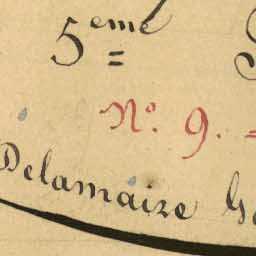 5eme
No. 9.
Delamaire